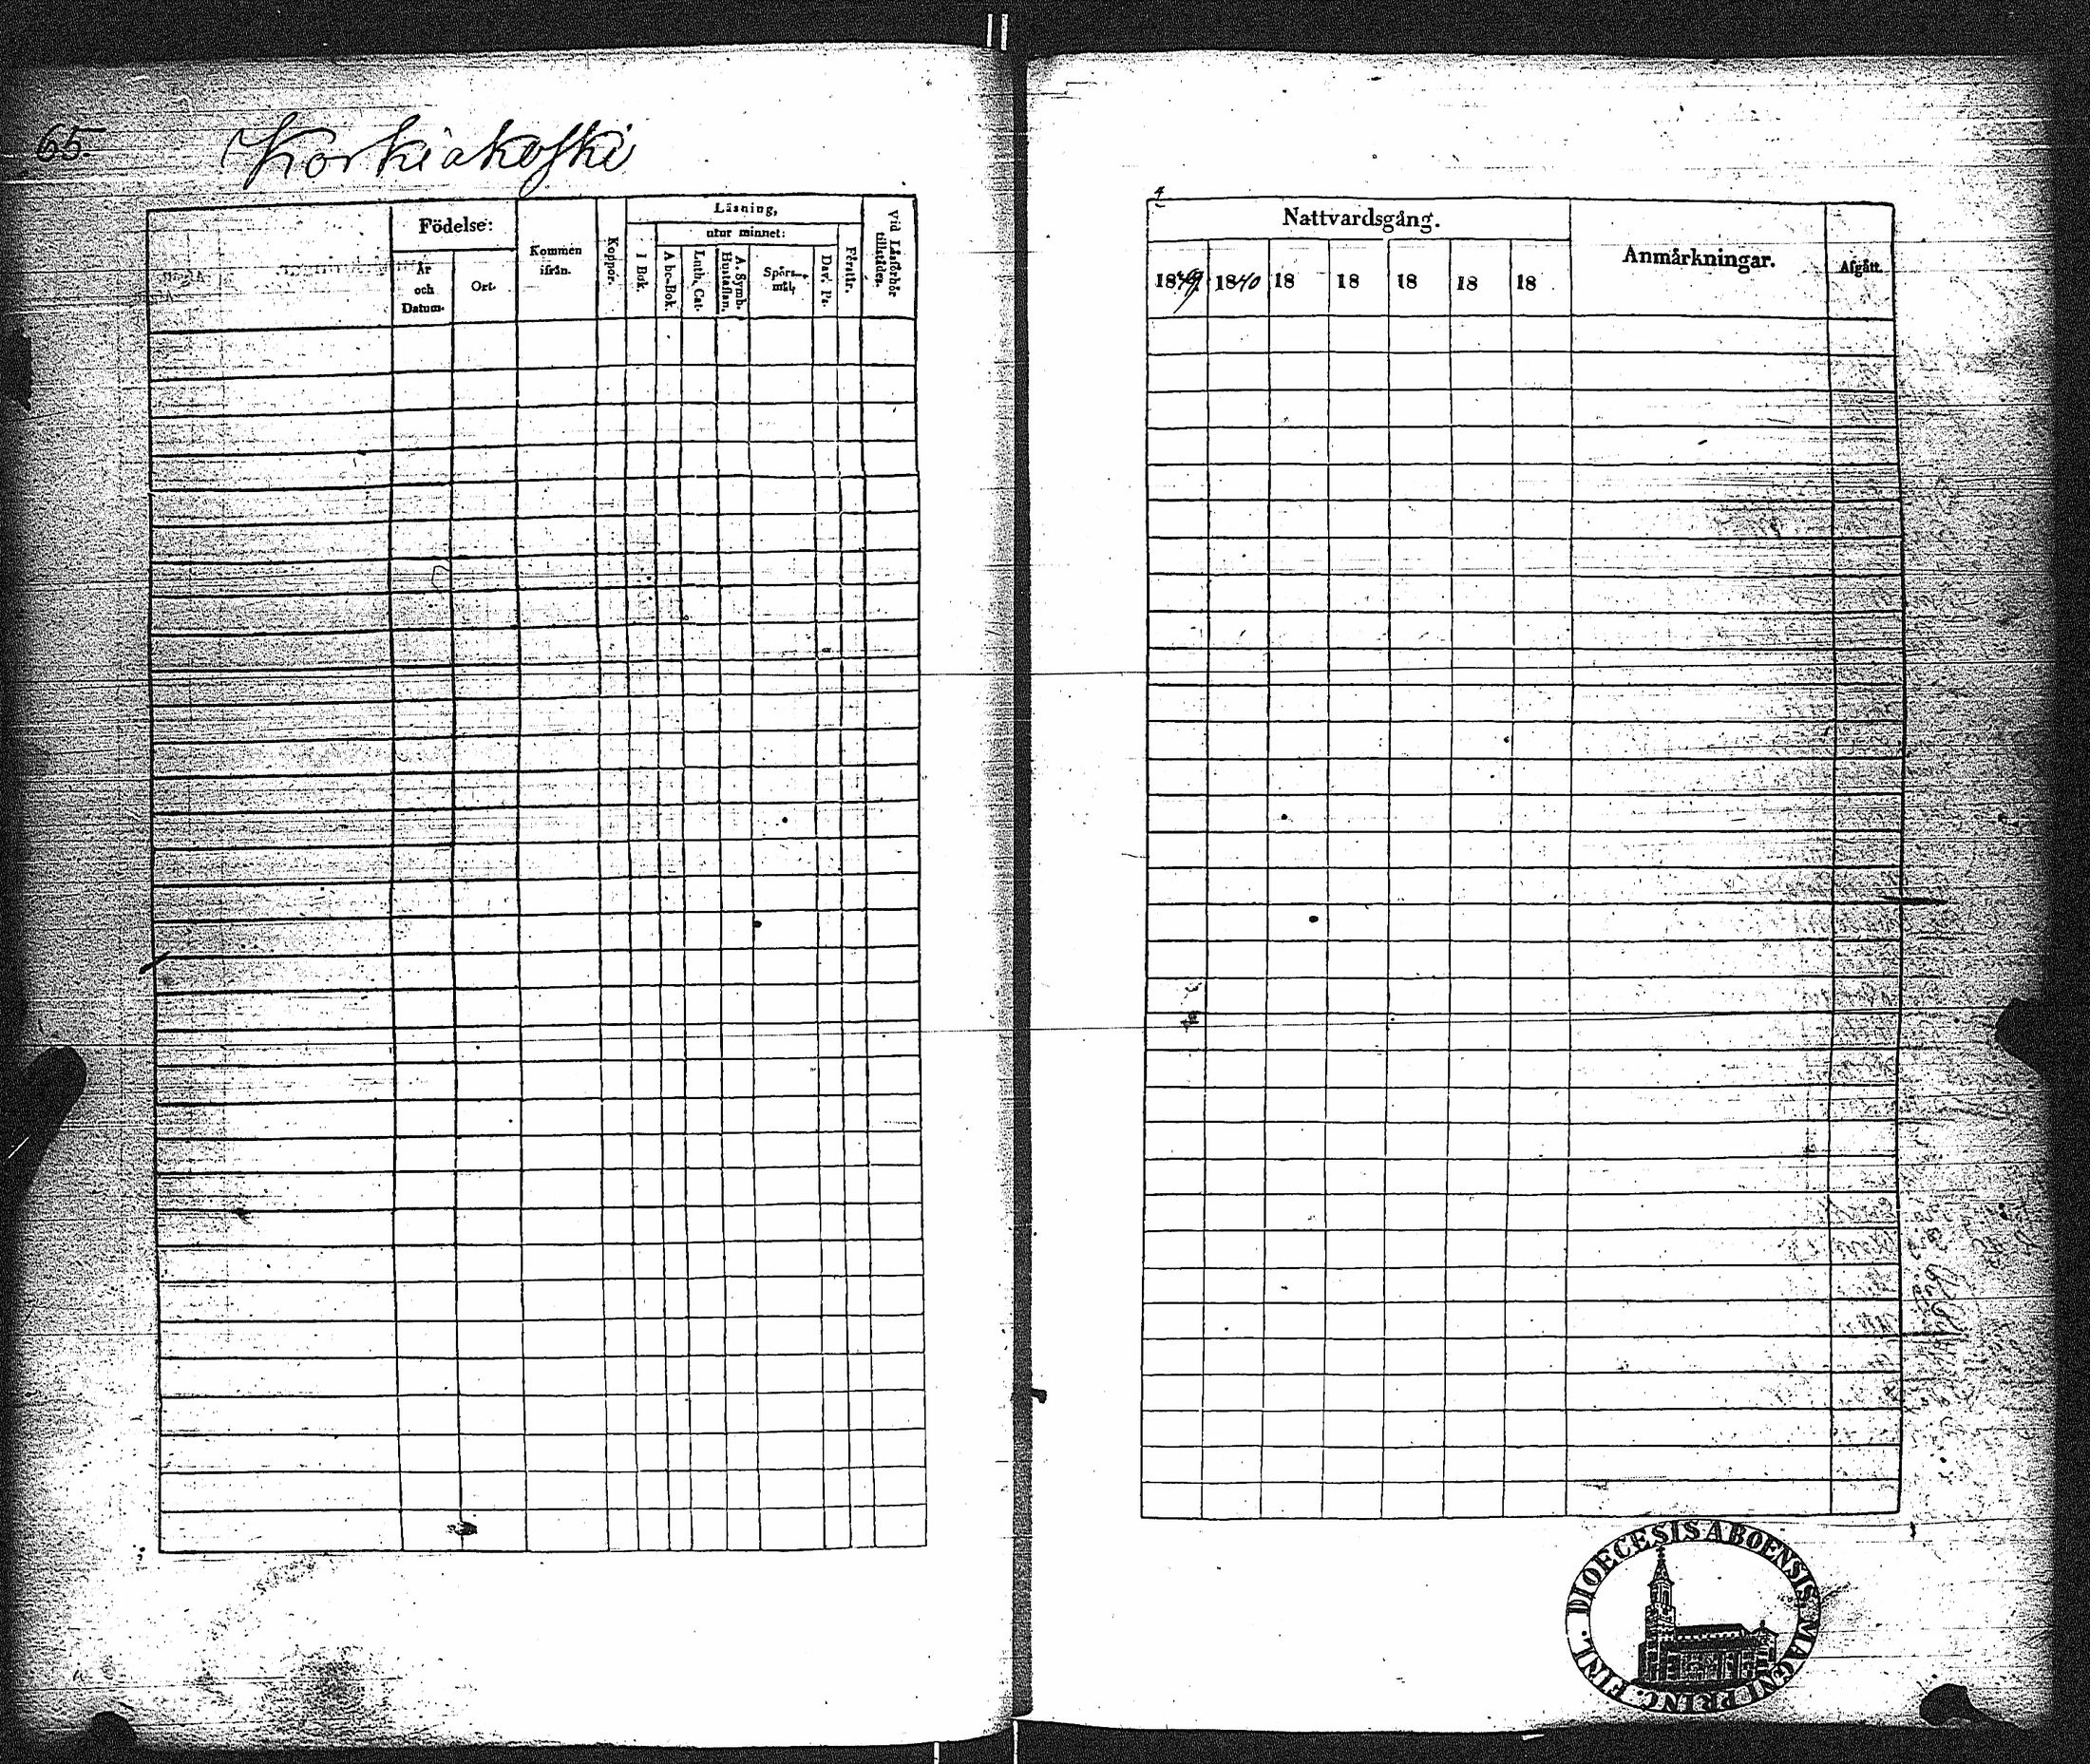 65.
Korkiakoski
Födelse:
År
och
Datum.
Ort.
Kommen
ifrån.
Koppor.
Läsning,
utur minnet:
I Bok.
A bc-Bok.
Luth. Cat.
A. Symb.
Hustaflan.
Spörs-
mål,
Dav. Ps.
Förstår.
Vid Läsförhör
tillstädes.
Nattvardsgång.
1839 1840 18 18 18 18 18
Anmärkningar.
Afgått.
DIOECESIS ABOENSIS MAGNI PRINC. FINL.